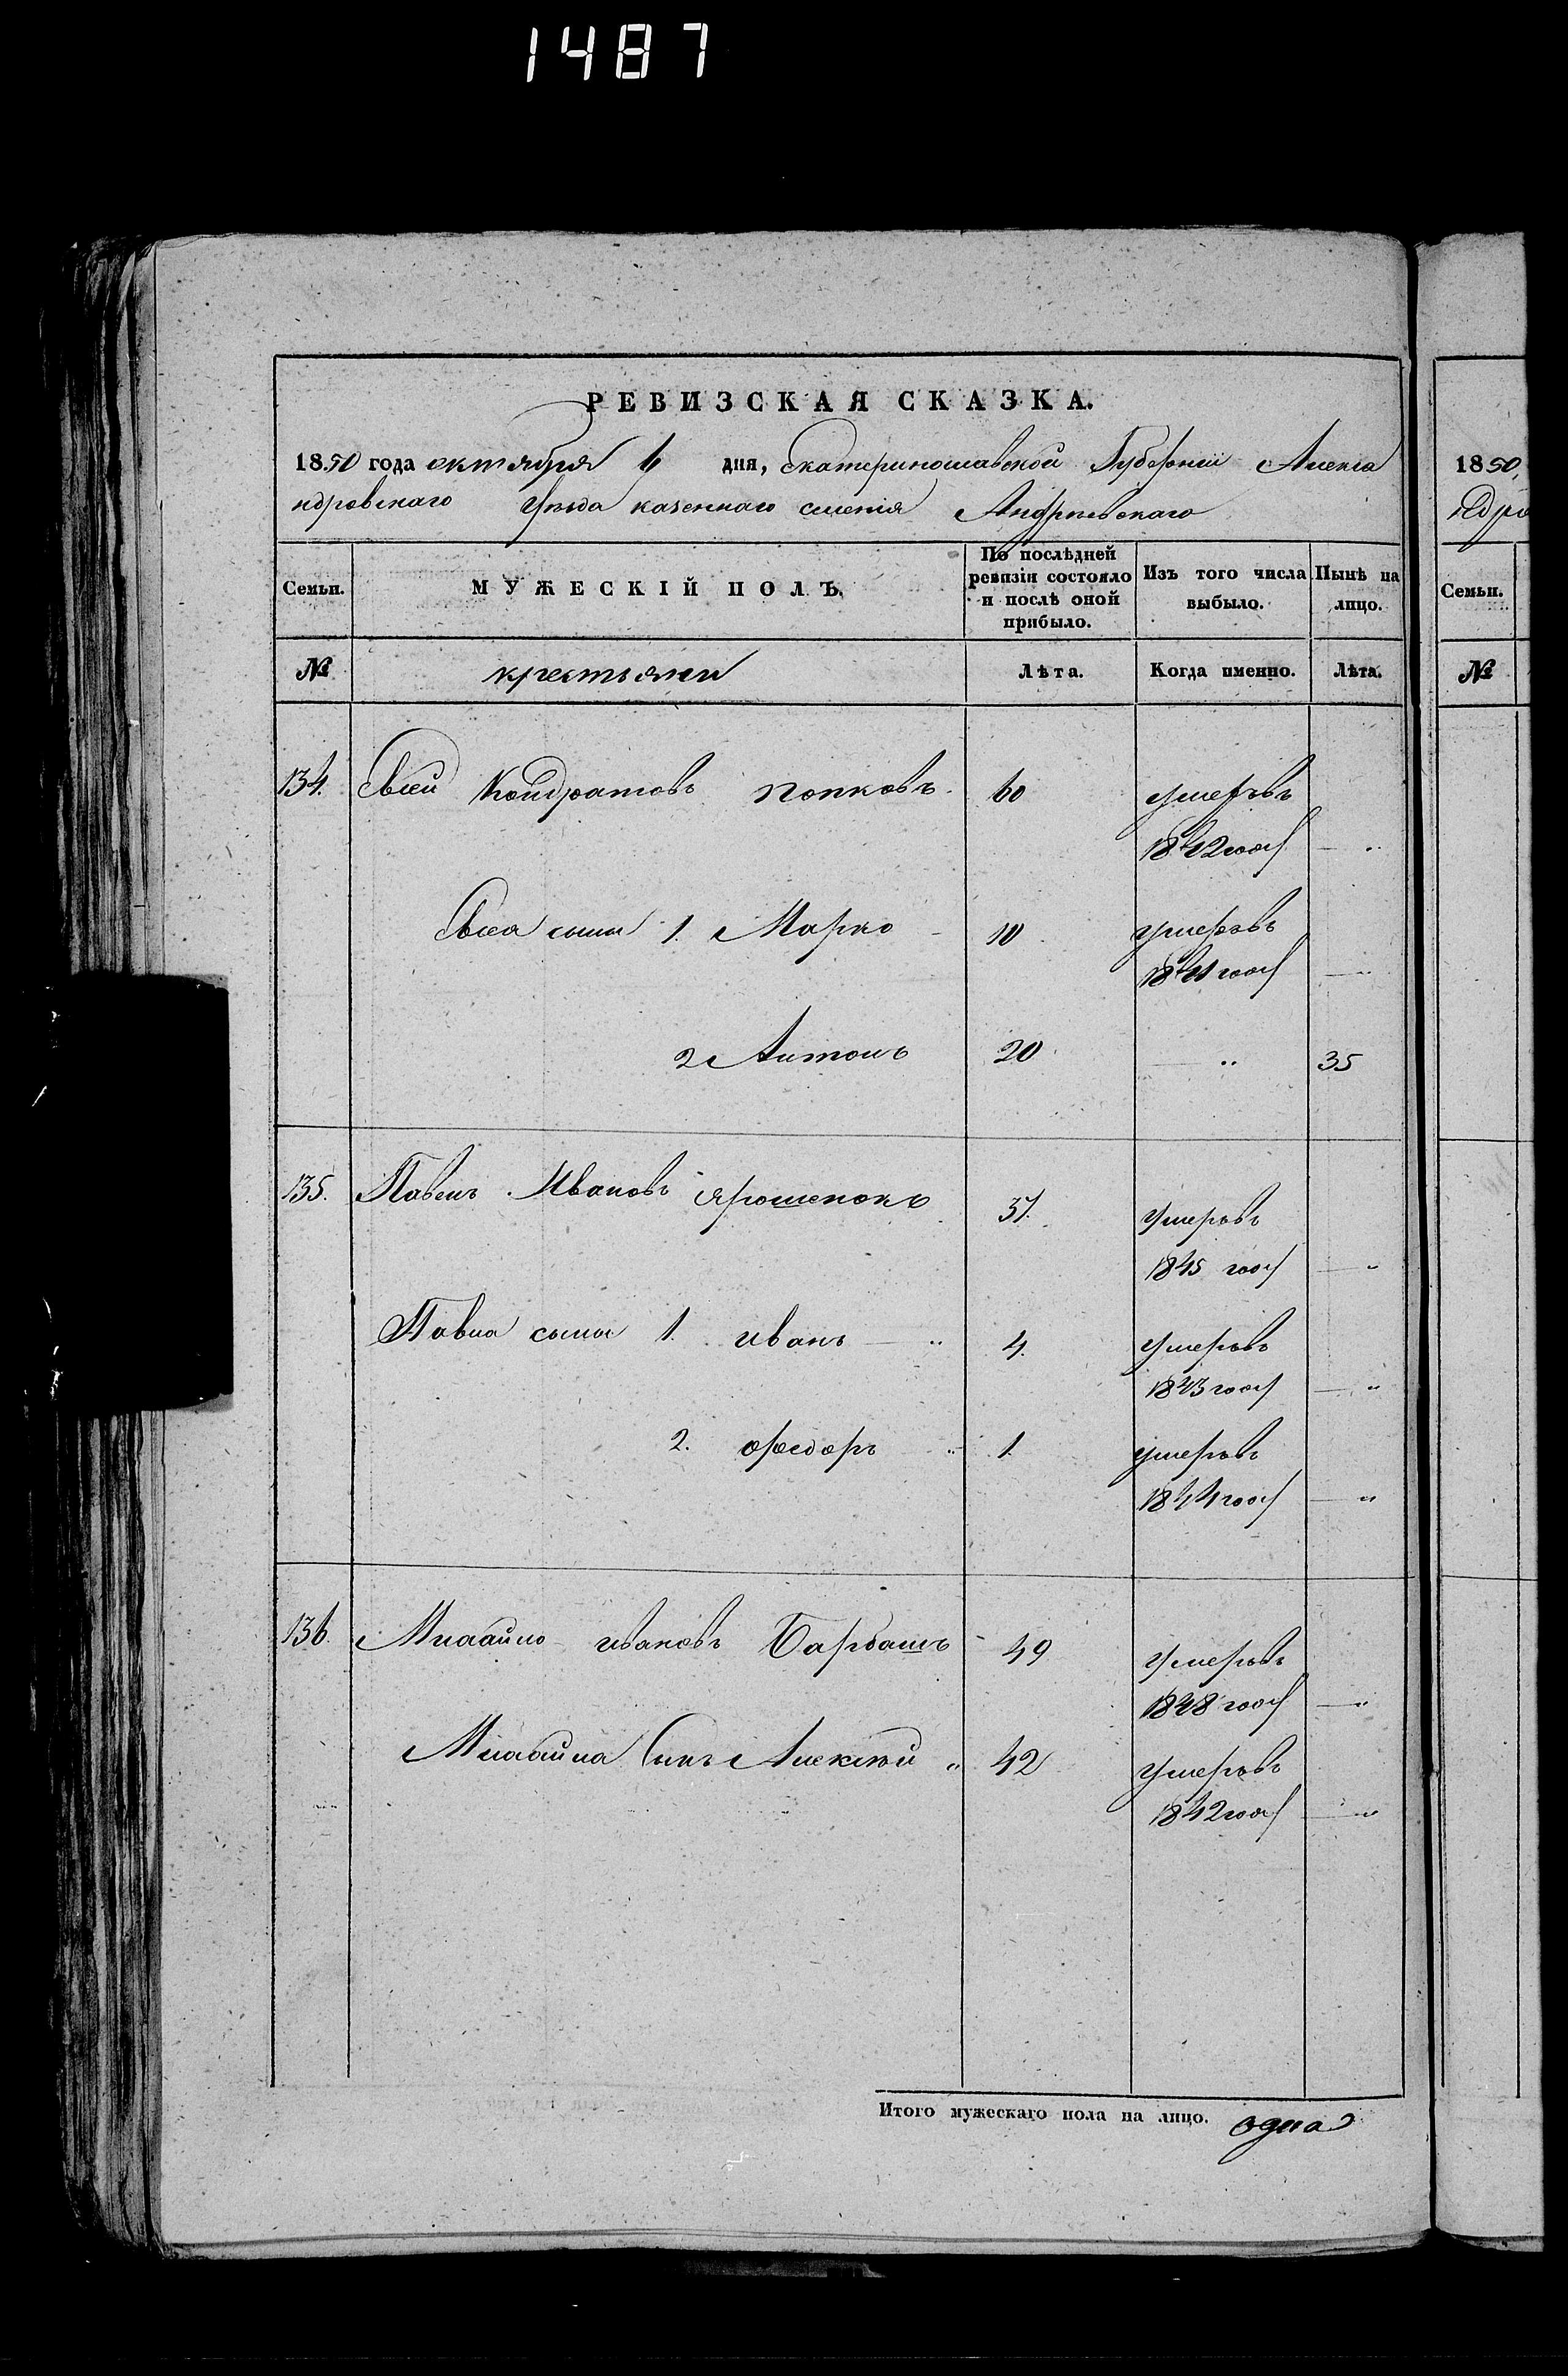 1487
РЕВИЗСКАЯ СКАЗКА.
1850 года октября 6 дня, Екатеринославской Губернии Алекса
ндровскаго Уѣзда казеннаго селенія Андрѣевскаго
Семьи. МУЖЕСКІЙ ПОЛЪ. По послѣдней ревизіи состояло и послѣ оной прибыло. Изъ того числа выбыло. Нынѣ на лицо.
№ крестьяни Лѣта. Когда именно. Лѣта.
134. Кондратовъ попковъ 60 умеръвъ
1842 году — "
сыны 1. Марко - 10 умеръвъ
1841 году — "
2 Антонъ 20 — " 35
135. Павелъ Ивановъ Ярошенокъ 37. Умеръвъ
1845 году — "
Павла сыны 1. иванъ — " 4. Умеръвъ
1843 году — "
2. федоръ " 1. умеръвъ
1844 году — "
136. Михайло ивановъ Барбашъ 49 Умеръвъ
1848 году — "
Михайла Сынъ Алексѣй " 42 Умеръвъ
1842 году — "
Итого мужескаго пола на лицо. одна
1850,
ндро
Семьи.
№